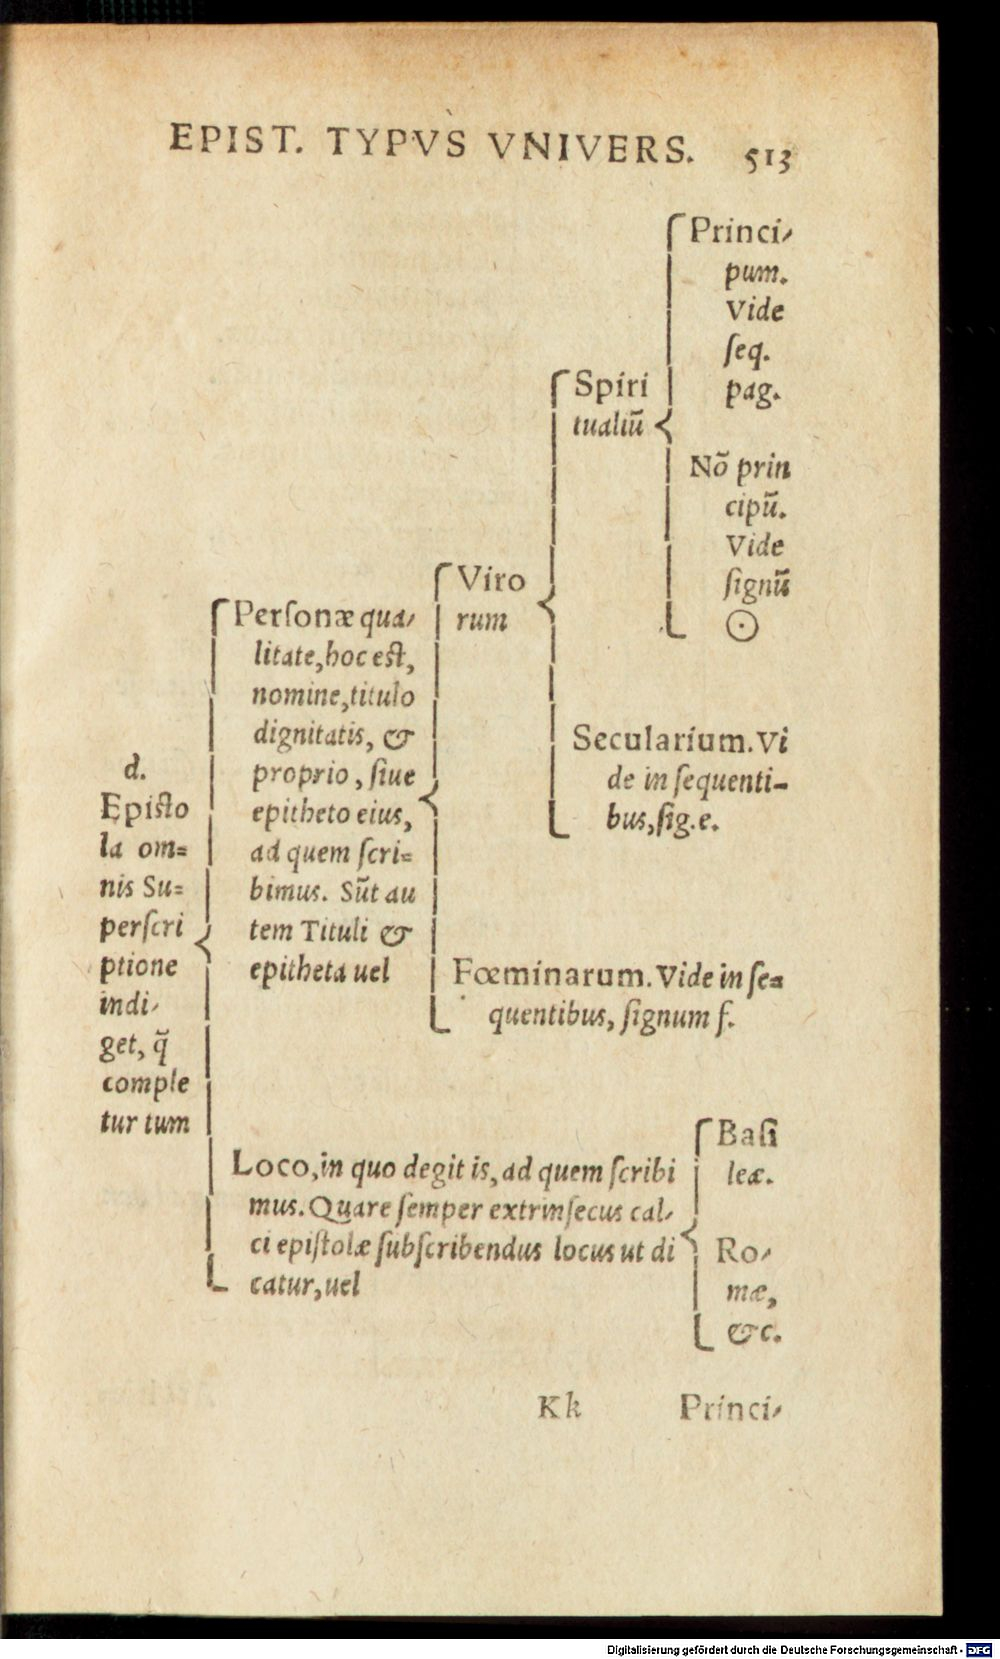 EPIST. TYPVS VNIVERS. 513
d.
Epiſto
la om=
nis Su=
perſcri
ptione
indi-
get, q̃
comple
tur tum
Perſonæ qua-
litate, hoc eſt,
nomine, titulo
dignitatis, &
proprio, ſiue
epitheto eius,
ad quem ſcri=
bimus. Sũt au
tem Tituli &
epitheta uel
Viro
rum
Spiri
tualiũ
Princi-
pum.
Vide
ſeq.
pag.
Nõ prin
cipũ.
Vide
ſignũ
☉
Secularium. Vi
de in ſequenti-
bus, ſig. e.
Fœminarum. Vide in ſe=
quentibus, ſignum f.
Loco, in quo degit is, ad quem ſcribi
mus. Quare ſemper extrinſecus cal-
ci epiſtolæ ſubſcribendus locus ut di
catur, uel
Baſi
leæ.
Ro-
mæ,
&c.
Kk Princi-
Digitalisierung gefördert durch die Deutsche Forschungsgemeinschaft - DFG